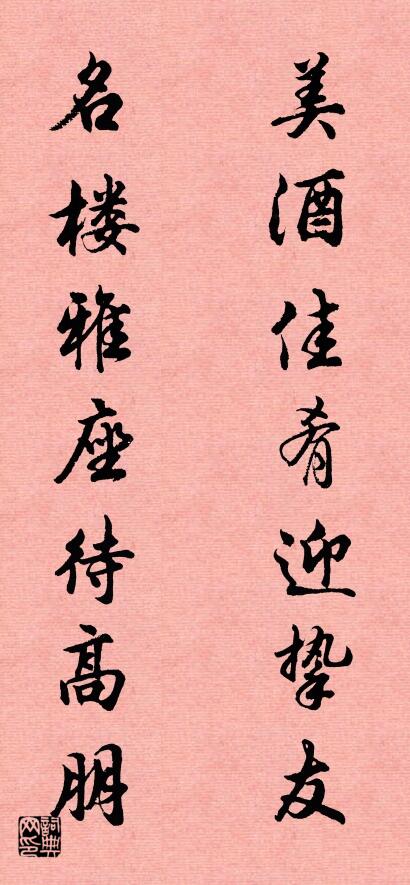 美酒佳肴迎挚友
名楼雅座待高朋
詞典网印